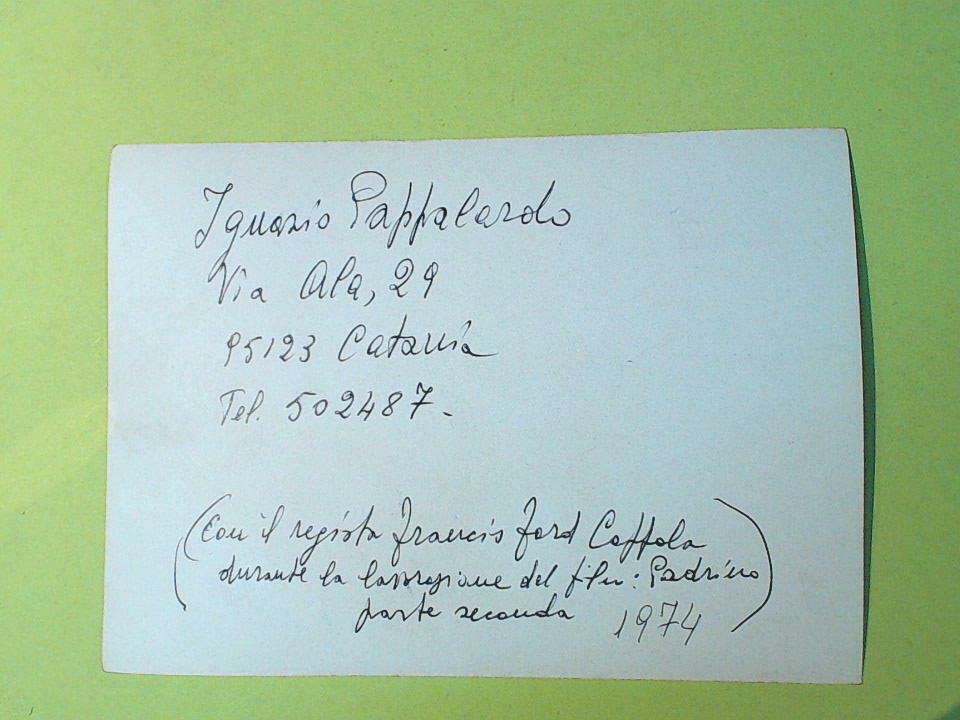 Ignazio Pappalardo
Via Ala, 29
95123 Catania
Tel. 502487.
(Con il regista Francis Ford Coppola
durante la lavorazione del film: Padrino
parte seconda 1974)